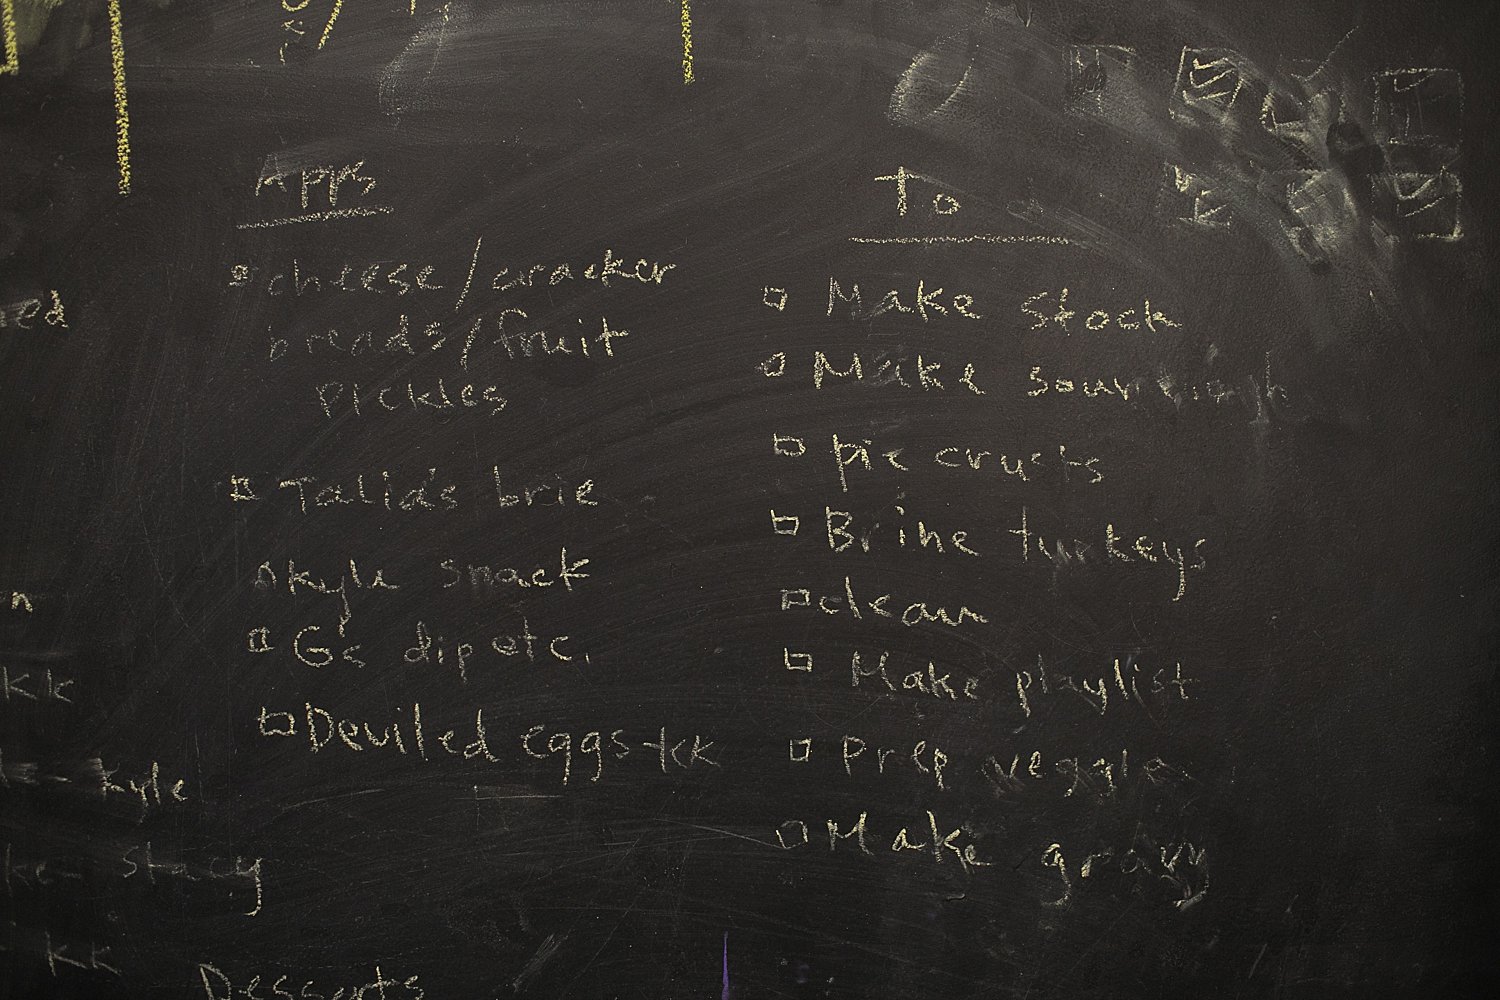 Apps
cheese/cracker
breads/fruit
pickles
Talia's brie
Kyle snack
G's dip etc.
Deviled eggs-KK
To
Make stock
Make sourdough
pie crusts
Brine turkeys
clean
Make playlist
prep veggie
Make gravy
ed
n
KK
Kyle
ke- stacy
KK
Desserts